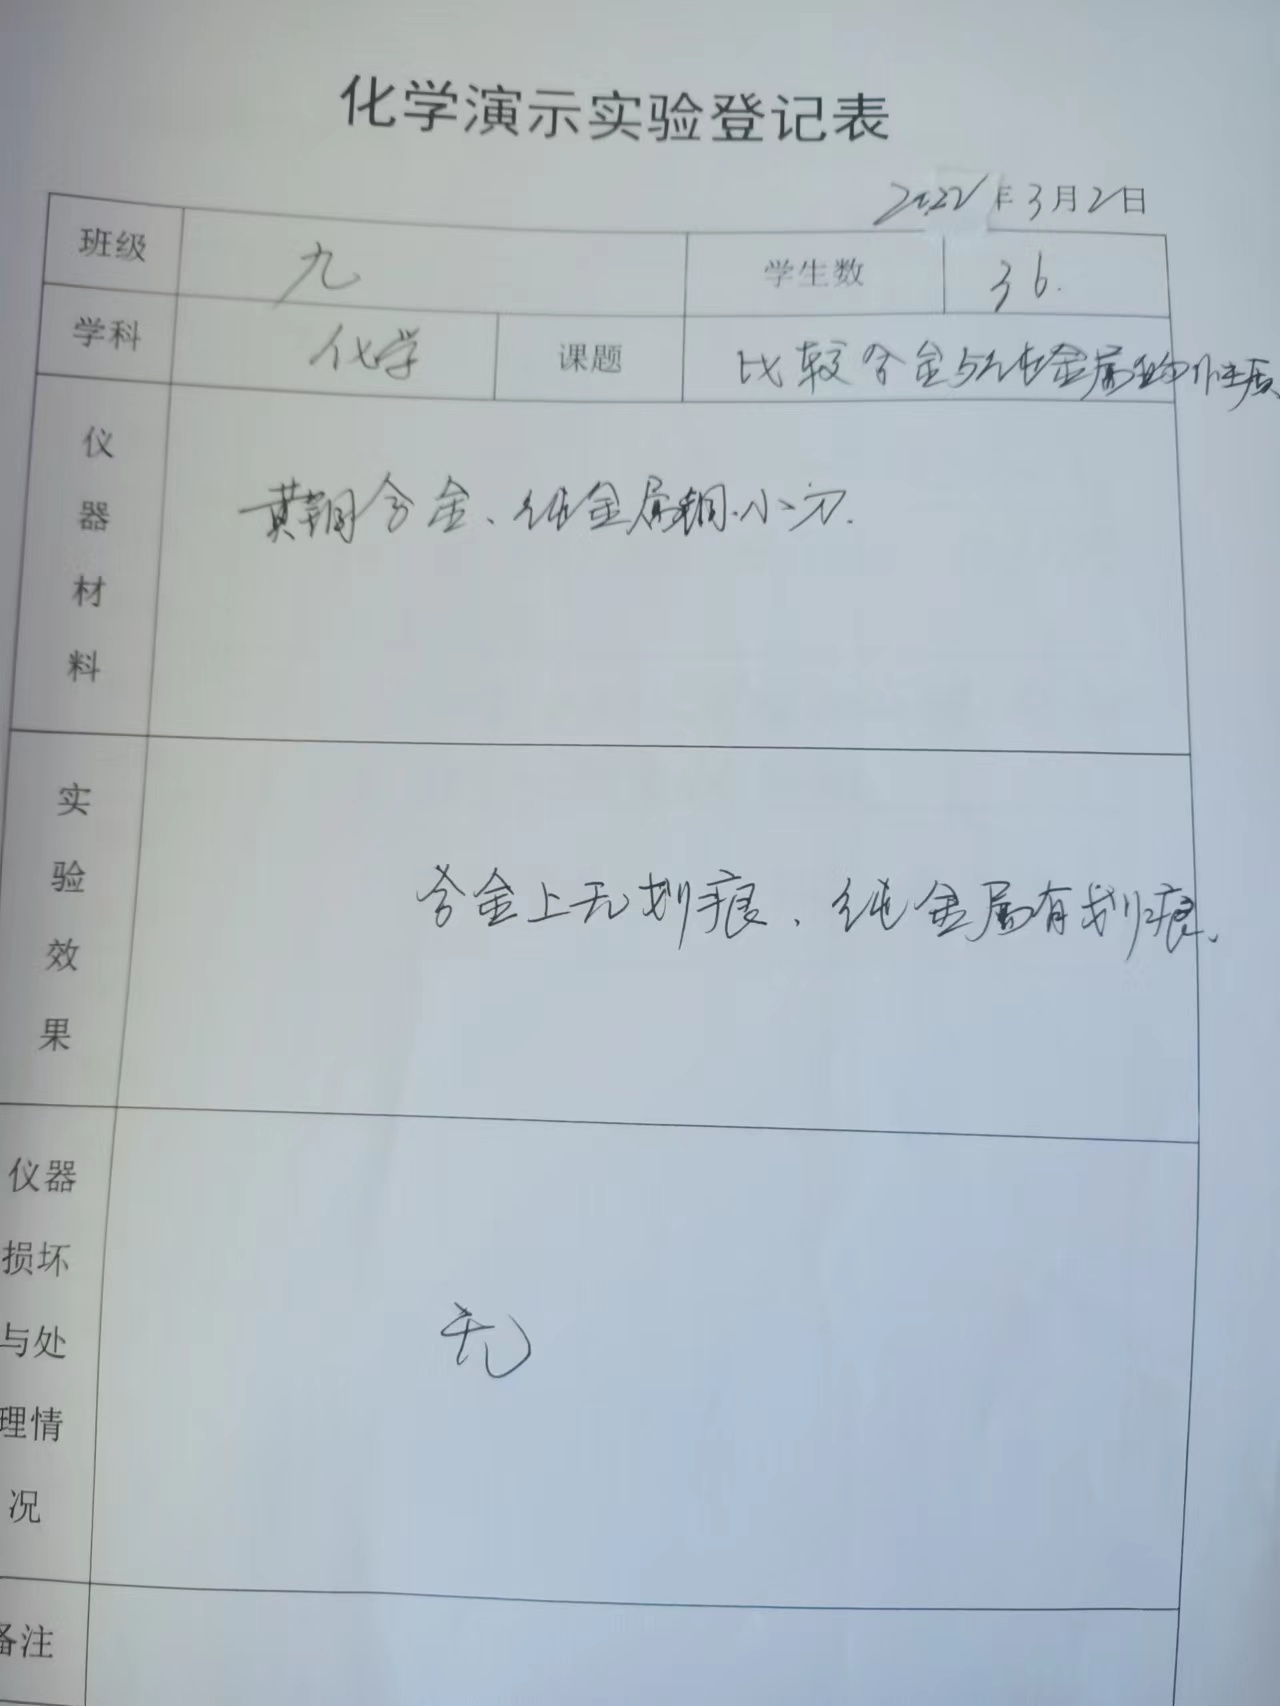 化学演示实验登记表
2022年3月2日
班级 九 学生数 36.
学科 化学 课题 比较合金与纯金属的性质
仪器材料 黄铜合金、纯金属铜.小刀.
实验效果 合金上无划痕、纯金属有划痕.
仪器损坏与处理情况 无
备注